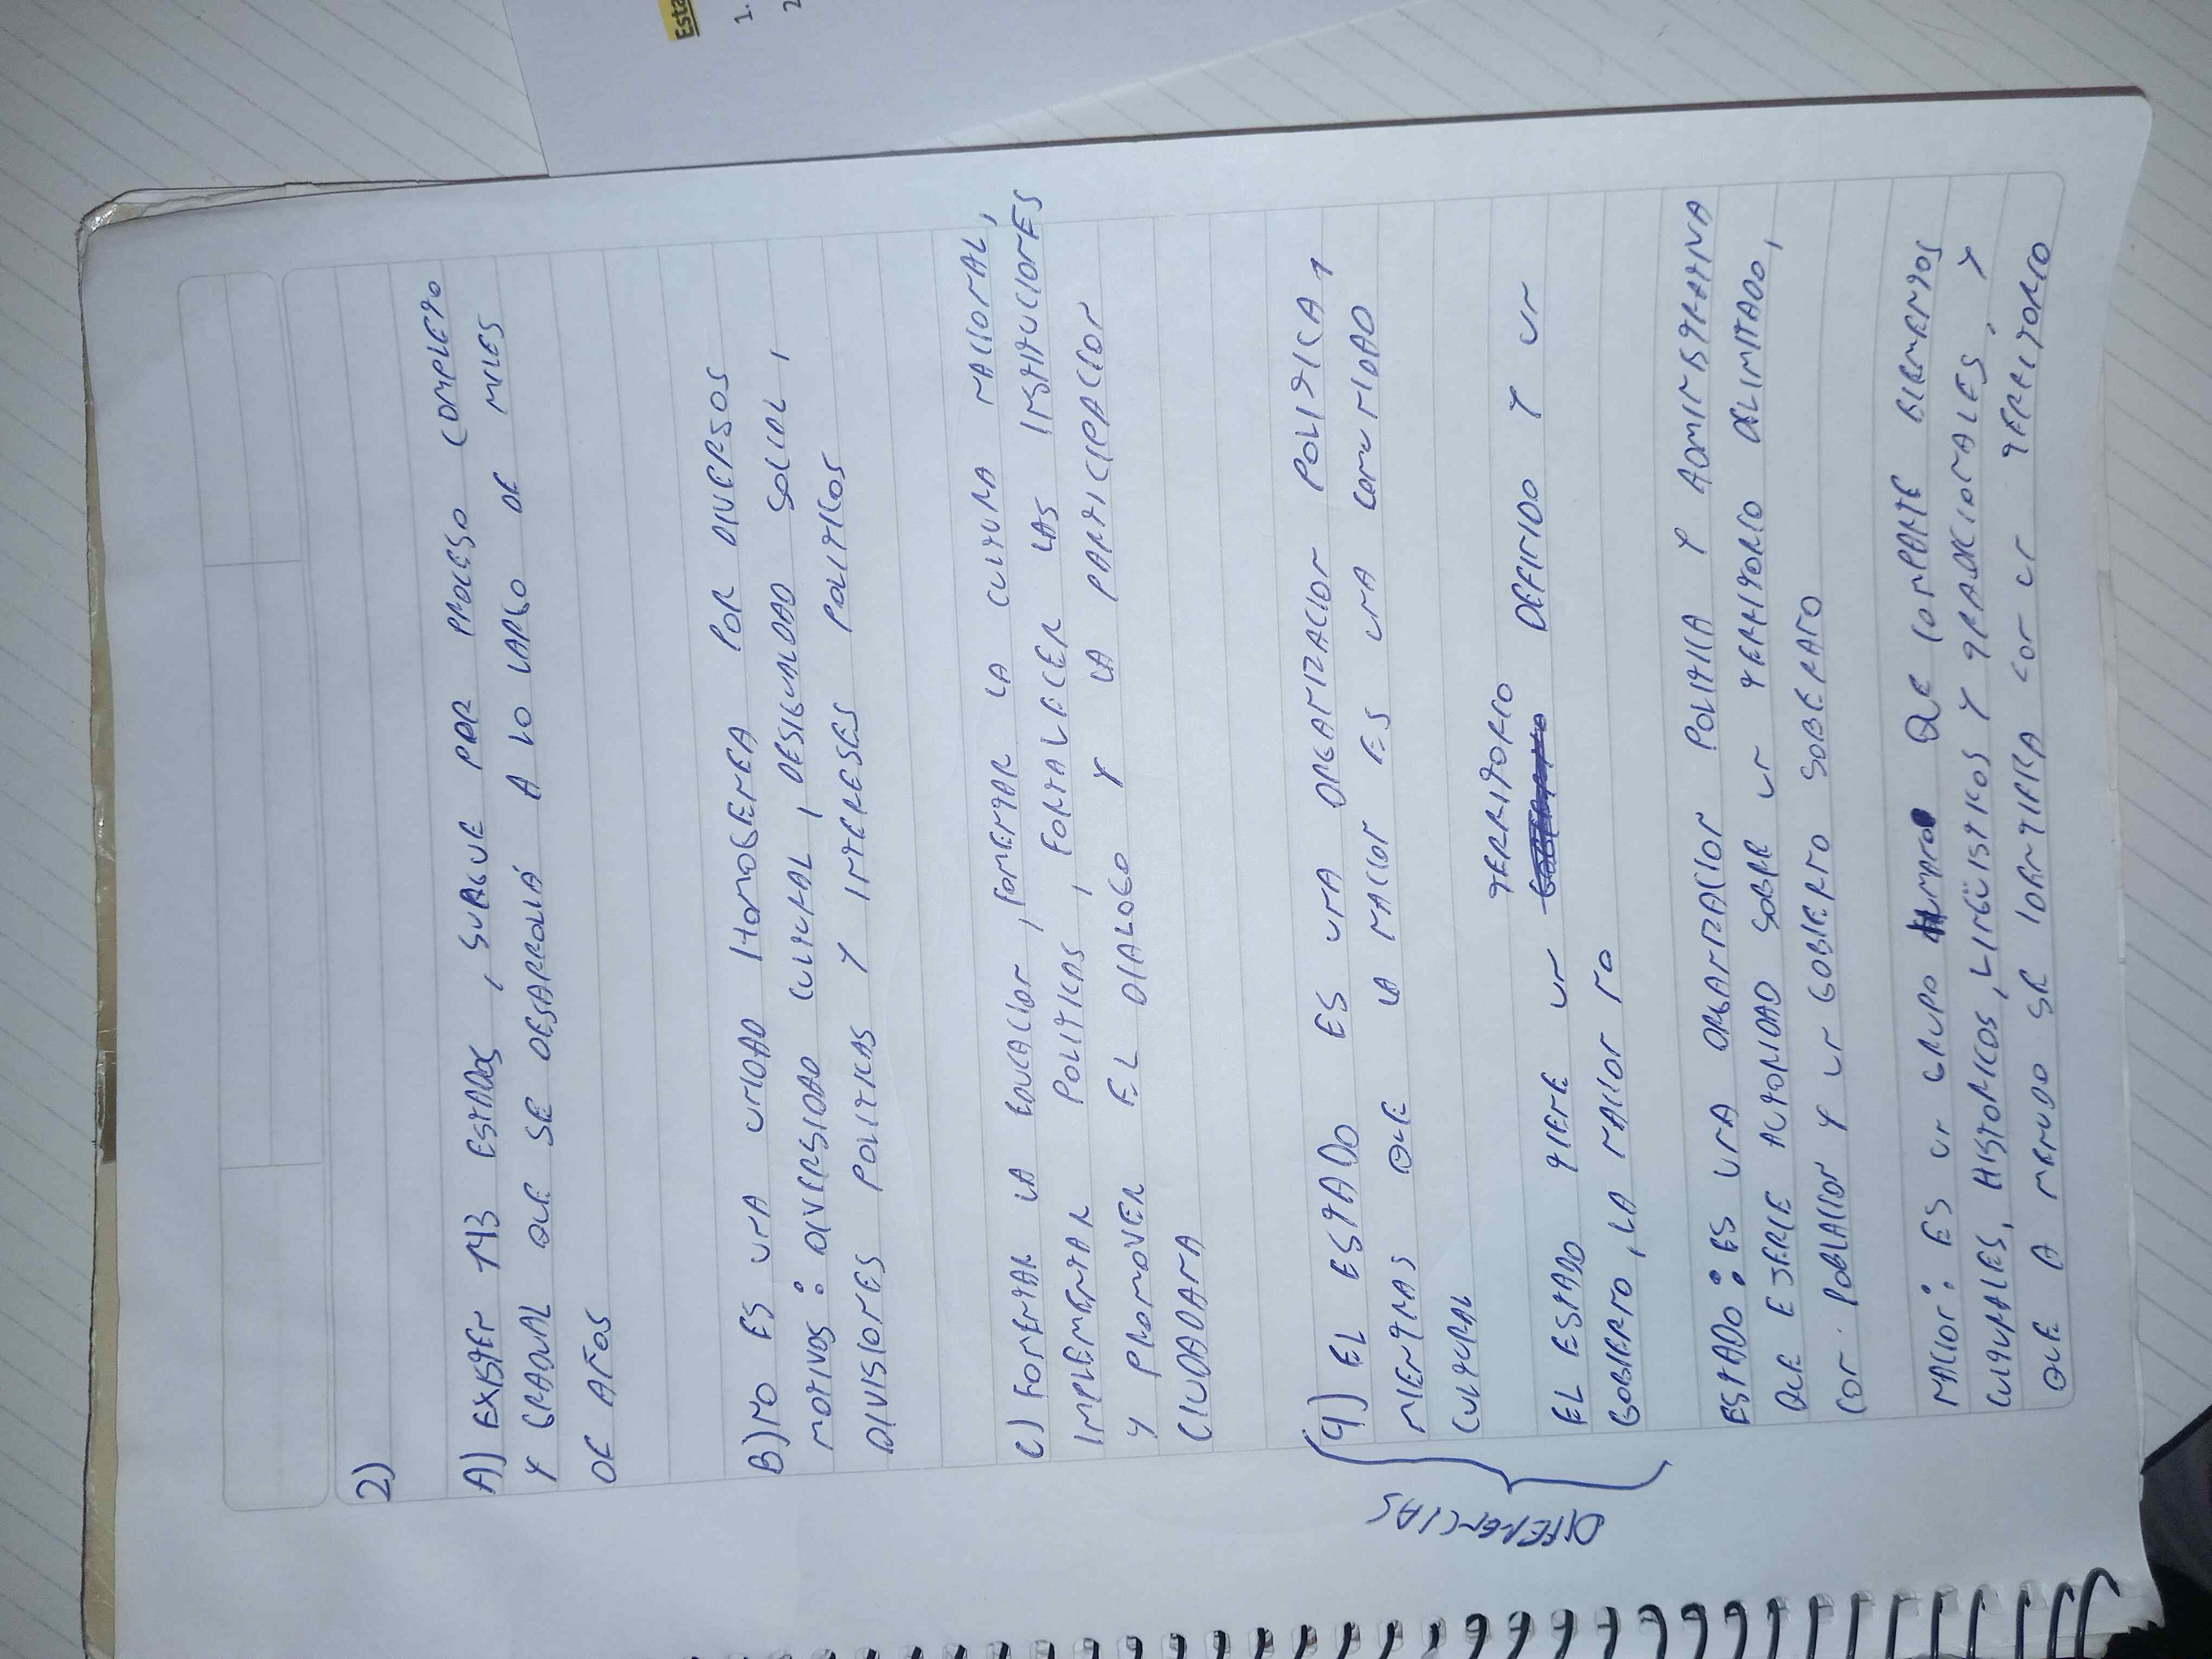 Esta
1.
2
2)
A) EXISTEN 193 ESTADOS , SURGUE POR PROCESO COMPLETO
Y GRADUAL QUE SE DESARROLLÁ A LO LARGO DE MILES
DE AÑOS
B) NO ES UNA UNIDAD HOMOGENEA POR DIVERSOS
MOTIVOS : DIVERSIDAD CULTURAL , DESIGUALDAD SOCIAL ,
DIVISIONES POLITICAS Y INTERESES POLITICOS
C) FOMENTAR LA EDUCACION , FOMENTAR LA CULTURA NACIONAL ,
IMPLEMENTAR POLITICAS , FORTALECER LAS INSTITUCIONES
Y PROMOVER EL DIALOGO Y LA PARTICIPACION
CIUDADANA
DIFERENCIAS
4) EL ESTADO ES UNA ORGANIZACION POLITICA ,
MIENTRAS QUE LA NACION ES UNA COMUNIDAD
CULTURAL
TERRITORIO
EL ESTADO TIENE UN DEFINIDO Y UN
GOBIERNO , LA NACION NO
ESTADO : ES UNA ORGANIZACION POLITICA Y ADMINISTRATIVA
QUE EJERCE AUTORIDAD SOBRE UN TERRITORIO DELIMITADO ,
CON POBLACION Y UN GOBIERNO SOBERANO
NACION : ES UN GRUPO QUE COMPARTE ELEMENTOS
CULTURALES, HISTORICOS , LINGÜISTICOS Y TRADICIONALES , Y
QUE A MENUDO SE IDENTIFICA CON UN TERRITORIO